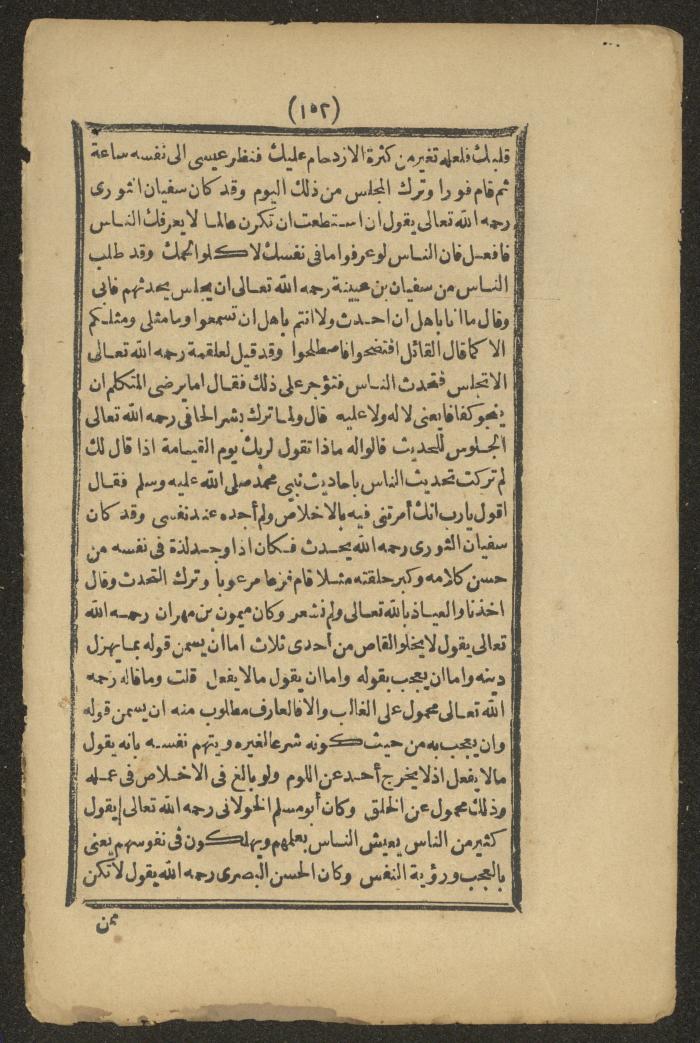 (١٥٢)
قلبك فلعله تغير من كثرة الازدحام عليك فنظر عيسى الى نفسه ساعة
ثم قام فورا وترك المجلس من ذلك اليوم وقد كان سفيان الثورى
رحمه الله تعالى يقول ان استطعت ان تكون عالما لا يعرفك الناس
فافعل فان الناس لو عرفوا ما فى نفسك لاكلوا لحمك وقد طلب
الناس من سفيان بن عيينة رحمه الله تعالى ان يجلس يحدثهم فابى
وقال ما انا باهل ان احدث ولا انتم باهل ان تسمعوا وما مثلى ومثلكم
الا كما قال القائل افتضحوا فاصطلحوا وقد قيل لعلقمة رحمه الله تعالى
الا تجلس فتحدث الناس فتؤجر على ذلك فقال اما يرضى المتكلم ان
ينجو كفافا يعنى لا له ولا عليه قال ولما ترك بشر الحافى رحمه الله تعالى
الجلوس للحديث قالوا له ماذا تقول لربك يوم القيامة اذا قال لك
لم تركت تحديث الناس باحاديث نبيى محمد صلى الله عليه وسلم فقال
اقول يارب انك أمرتنى فيه بالاخلاص ولم أجده عند نفسى وقد كان
سفيان الثورى رحمه الله يحدث فكان اذا وجد لذة فى نفسه من
حسن كلامه وكبر حلقته مثلا قام فزعا مرعوبا وترك التحدث وقال
اخذنا والعياذ بالله تعالى ولم نشعر وكان ميمون بن مهران رحمه الله
تعالى يقول لا يخلو القاص من أحدى ثلاث اما ان يسمن قوله بما يهزل
دينه واما ان يعجب بقوله واما ان يقول ما لا يفعل قلت وما قاله رحمه
الله تعالى محمول على الغالب والا فالعارف مطلوب منه ان يسمن قوله
وان يعجب به من حيث كونه شرعا لغيره ويتهم نفسه بانه يقول
ما لا يفعل اذ لا يخرج أحد عن اللوم ولو بالغ فى الاخلاص فى عمله
وذلك محمول عن الخلق وكان أبو مسلم الخولانى رحمه الله تعالى يقول
كثير من الناس يعيش الناس بعلمهم ويهلكون فى نفوسهم يعنى
بالعجب ورؤية النفس وكان الحسن البصرى رحمه الله يقول لا تكن
ممن